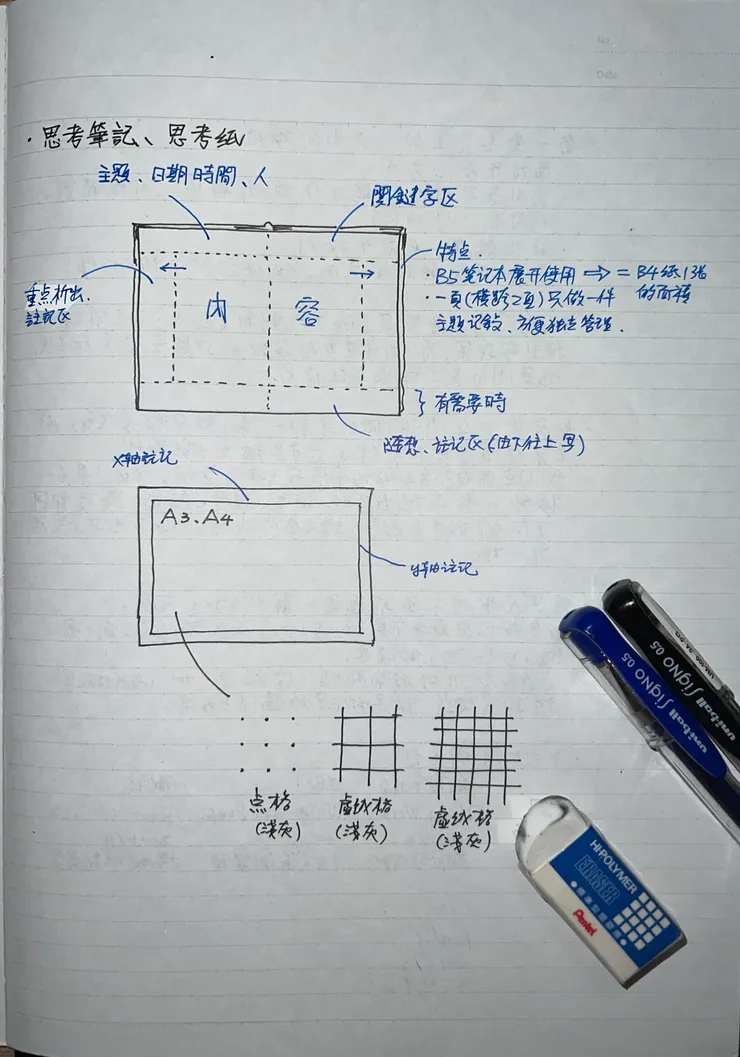 No.
Date
·思考筆記、思考纸
主题、日期時間、人
関鍵字区
特点.
·B5笔记本展开使用 ⇒ = B4纸1张
的面積
·一頁(横跨2頁)只做一件
主題记錄、方便独立管理.
重点析出.
註记区
内 容
} 有需要時
随想、註记区(由下往上写)
X轴註记
A3、A4
y轴註记
点格
(浅灰)
虚线格
(浅灰)
虚线格
(浅灰)
uni-ball Signo 0.5
uni-ball Signo 0.5
HI-POLYMER
ERASER
Pentel